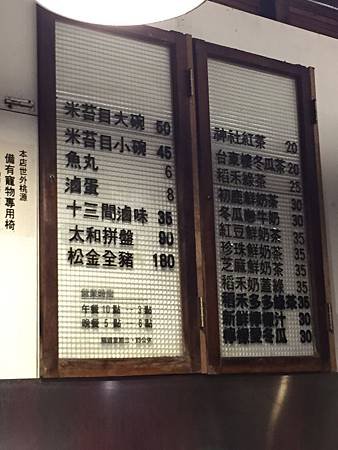 本店世外桃源
備有寵物專用椅
米苔目大碗 50
米苔目小碗 45
魚丸 6
滷蛋 8
十三間滷味 35
太和拼盤 90
松金全豬 180
營業時間
午餐 10點
晚餐 5點
神社紅茶 20
台東檨冬瓜茶 20
稻禾綠茶 25
初鹿鮮奶茶 30
冬瓜 牛奶 30
紅豆鮮奶茶 35
珍珠鮮奶茶 35
芝麻鮮奶茶 35
稻禾奶蓋綠 35
稻禾多多綠茶 35
新鮮檸檬汁 30
檸檬 冬瓜 30